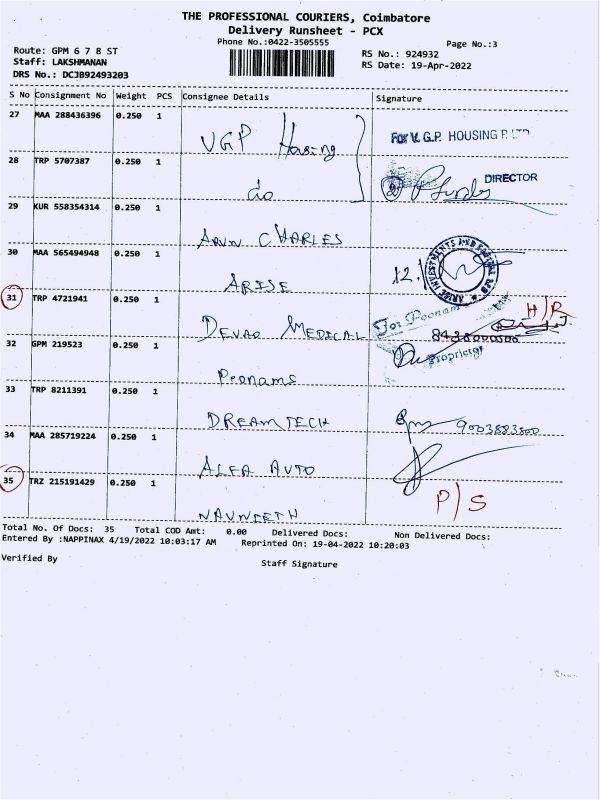 THE PROFESSIONAL COURIERS, Coimbatore
Delivery Runsheet - PCX
Phone No.:0422-3505555
Page No.:3
Route: GPM 6 7 8 ST
RS No.: 924932
Staff: LAKSHMANAN
RS Date: 19-Apr-2022
DRS No.: DCJB92493203
S No Consignment No Weight PCS Consignee Details Signature
27 MAA 288436396 0.250 1
VGP Housing
For V. G.P. HOUSING P. LTD
28 TRP 5707387 0.250 1
do
DIRECTOR
29 KUR 558354314 0.250 1
ARUN CHARLES
30 MAA 565494948 0.250 1
ARISE
12.
ARISE INVESTMENTS AND CAPITAL
31 TRP 4721941 0.250 1
H/R
DEVAO MEDICAL
For Poonam
32 GPM 219523 0.250 1
Proprietor
Poonams
33 TRP 8211391 0.250 1
DREAMTECH
9003883800
34 MAA 285719224 0.250 1
ALFA AUTO
35 TRZ 215191429 0.250 1
P/S
NAVNEETH
Total No. Of Docs: 35 Total COD Amt: 0.00 Delivered Docs: Non Delivered Docs:
Entered By :NAPPINAX 4/19/2022 10:03:17 AM Reprinted On: 19-04-2022 10:20:03
Verified By
Staff Signature